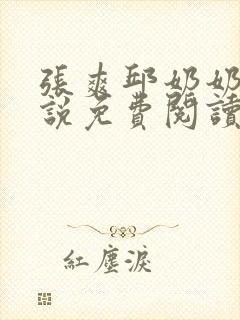 張爽邱奶奶
說免費閱讀
紅塵淚